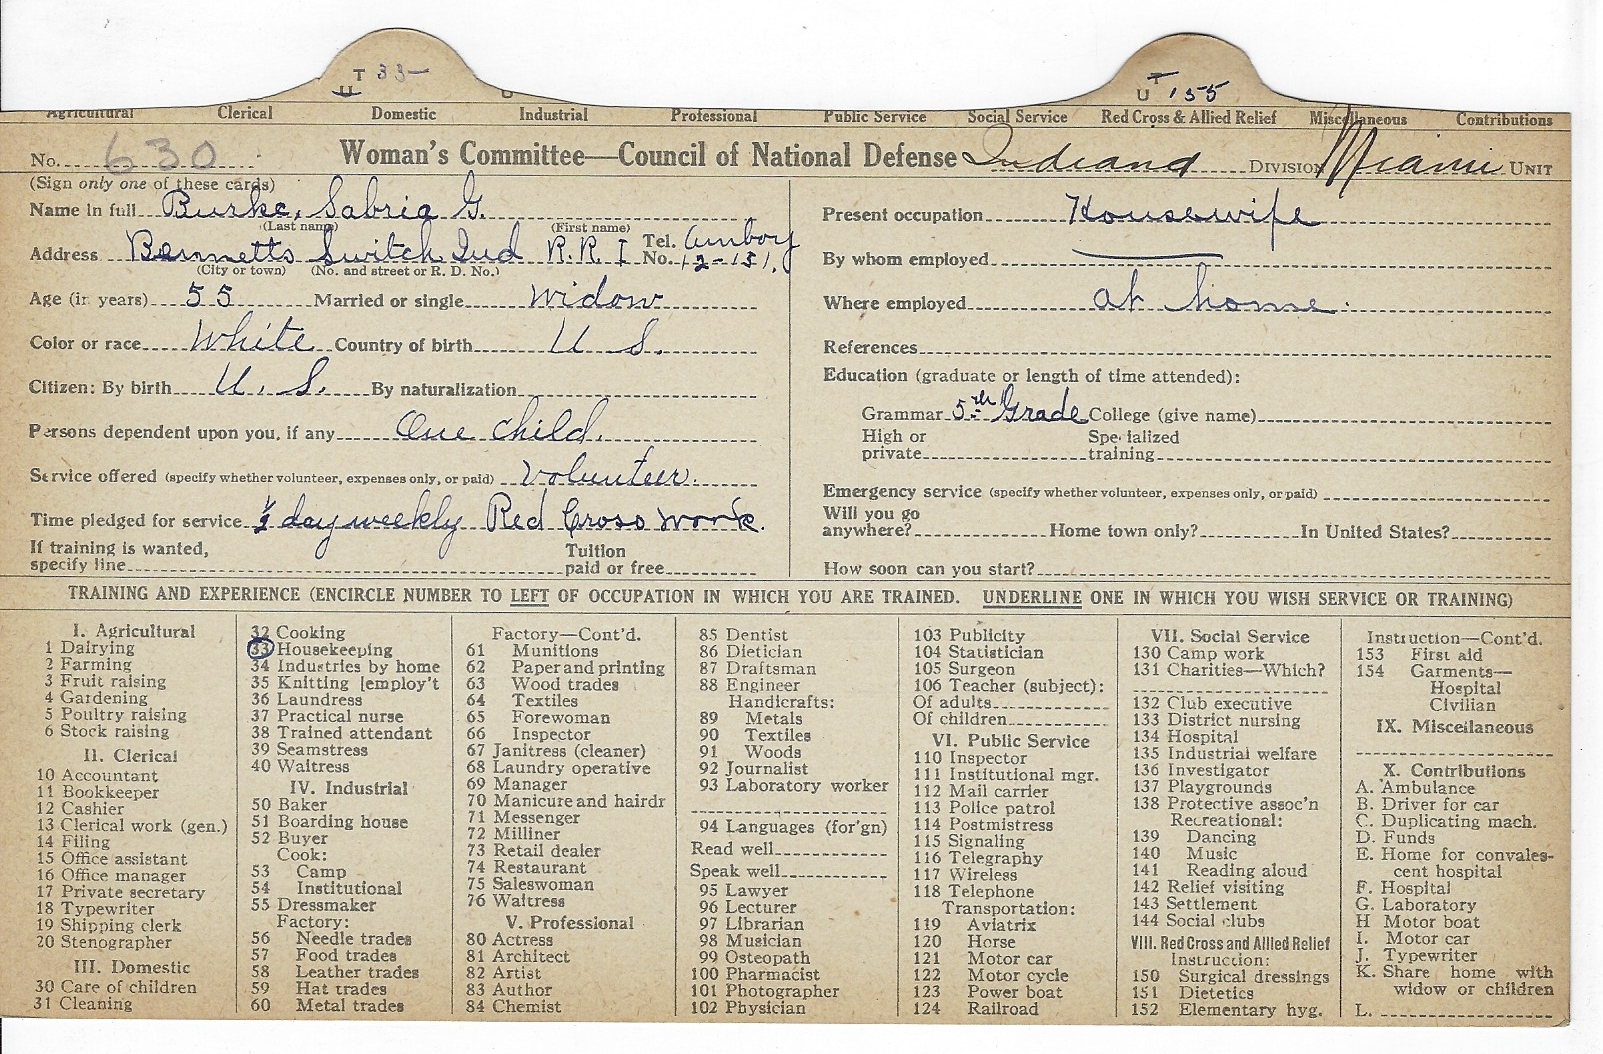 T 33— T
U U 155
Agricultural Clerical Domestic Industrial Professional Public Service Social Service Red Cross & Allied Relief Miscellaneous Contributions
No. 630 Woman's Committee—Council of National Defense Indiana DIVISION Miami UNIT
(Sign only one of these cards)
Name in full Burke, Sabria G.
(Last name) (First name)
Address Bennetts Switch Ind R.R. 1 Tel. No. Amboy 12-151.
(City or town) (No. and street or R. D. No.)
Age (in years) 55 Married or single widow
Color or race White Country of birth U S.
Citizen: By birth U. S. By naturalization
Persons dependent upon you, if any One child.
Service offered (specify whether volunteer, expenses only, or paid) Volunteer.
Time pledged for service ½ day weekly Red Cross work.
If training is wanted, Tuition
specify line paid or free
Present occupation Housewife
By whom employed
Where employed at home.
References
Education (graduate or length of time attended):
Grammar 5th Grade College (give name)
High or Specialized
private training
Emergency service (specify whether volunteer, expenses only, or paid)
Will you go
anywhere? Home town only? In United States?
How soon can you start?
TRAINING AND EXPERIENCE (ENCIRCLE NUMBER TO LEFT OF OCCUPATION IN WHICH YOU ARE TRAINED. UNDERLINE ONE IN WHICH YOU WISH SERVICE OR TRAINING)
I. Agricultural
1 Dairying
2 Farming
3 Fruit raising
4 Gardening
5 Poultry raising
6 Stock raising
II. Clerical
10 Accountant
11 Bookkeeper
12 Cashier
13 Clerical work (gen.)
14 Filing
15 Office assistant
16 Office manager
17 Private secretary
18 Typewriter
19 Shipping clerk
20 Stenographer
III. Domestic
30 Care of children
31 Cleaning
32 Cooking
33 Housekeeping
34 Industries by home
35 Knitting [employ't
36 Laundress
37 Practical nurse
38 Trained attendant
39 Seamstress
40 Waitress
IV. Industrial
50 Baker
51 Boarding house
52 Buyer
Cook:
53 Camp
54 Institutional
55 Dressmaker
Factory:
56 Needle trades
57 Food trades
58 Leather trades
59 Hat trades
60 Metal trades
Factory—Cont'd.
61 Munitions
62 Paper and printing
63 Wood trades
64 Textiles
65 Forewoman
66 Inspector
67 Janitress (cleaner)
68 Laundry operative
69 Manager
70 Manicure and hairdr
71 Messenger
72 Milliner
73 Retail dealer
74 Restaurant
75 Saleswoman
76 Waitress
V. Professional
80 Actress
81 Architect
82 Artist
83 Author
84 Chemist
85 Dentist
86 Dietician
87 Draftsman
88 Engineer
Handicrafts:
89 Metals
90 Textiles
91 Woods
92 Journalist
93 Laboratory worker
94 Languages (for'gn)
Read well
Speak well
95 Lawyer
96 Lecturer
97 Librarian
98 Musician
99 Osteopath
100 Pharmacist
101 Photographer
102 Physician
103 Publicity
104 Statistician
105 Surgeon
106 Teacher (subject):
Of adults
Of children
VI. Public Service
110 Inspector
111 Institutional mgr.
112 Mail carrier
113 Police patrol
114 Postmistress
115 Signaling
116 Telegraphy
117 Wireless
118 Telephone
Transportation:
119 Aviatrix
120 Horse
121 Motor car
122 Motor cycle
123 Power boat
124 Railroad
VII. Social Service
130 Camp work
131 Charities—Which?
132 Club executive
133 District nursing
134 Hospital
135 Industrial welfare
136 Investigator
137 Playgrounds
138 Protective assoc'n
Recreational:
139 Dancing
140 Music
141 Reading aloud
142 Relief visiting
143 Settlement
144 Social clubs
VIII. Red Cross and Allied Relief
Instruction:
150 Surgical dressings
151 Dietetics
152 Elementary hyg.
Instruction—Cont'd.
153 First aid
154 Garments—
Hospital
Civilian
IX. Miscellaneous
X. Contributions
A. Ambulance
B. Driver for car
C. Duplicating mach.
D. Funds
E. Home for convales-
cent hospital
F. Hospital
G. Laboratory
H Motor boat
I. Motor car
J. Typewriter
K. Share home with
widow or children
L.